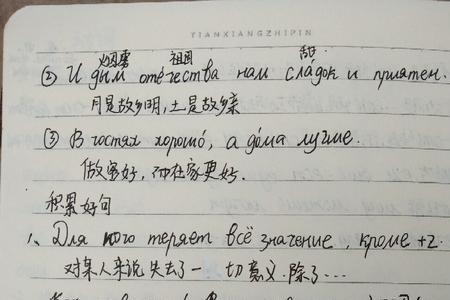 TIANXIANGZHIPIN
烟雾 祖国 甜
② И дым отéчества нам слáдок и приятен.
月是故乡明,土是故乡亲
③ В гостях хорошó, а дóма лучше.
做客好,但在家更好.
积累好句
1、Для кого теряет всё значение, кроме +2.
对某人来说失去了一切意义.除了…